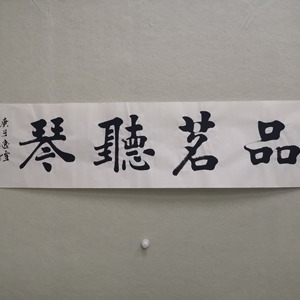 品茗聽琴